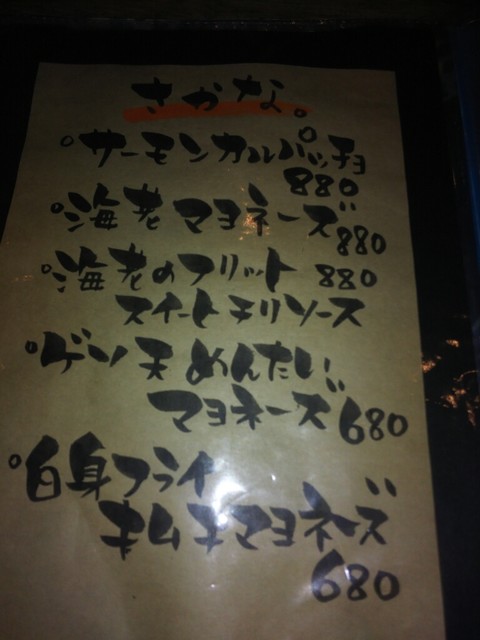 さかな。
サーモンカルパッチョ
880
海老マヨネーズ 880
海老のフリット 880
スイートチリソース
ゲソ天めんたい
マヨネーズ 680
白身フライ
キムチマヨネーズ
680